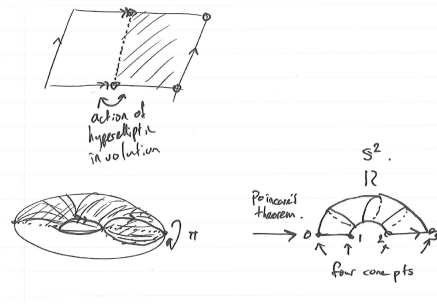 action of
hyperelliptic
involution
S².
Poincaré's
theorem.
π
0 1 2 3
four cone pts